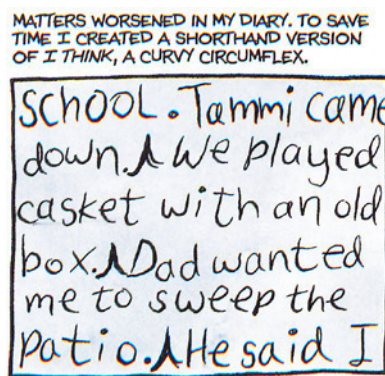 MATTERS WORSENED IN MY DIARY. TO SAVE
TIME I CREATED A SHORTHAND VERSION
OF I THINK, A CURVY CIRCUMFLEX.
SCHOOL. Tammi came
down. ʌ We played
casket with an old
box. ʌ Dad wanted
me to sweep the
patio. ʌ He said I